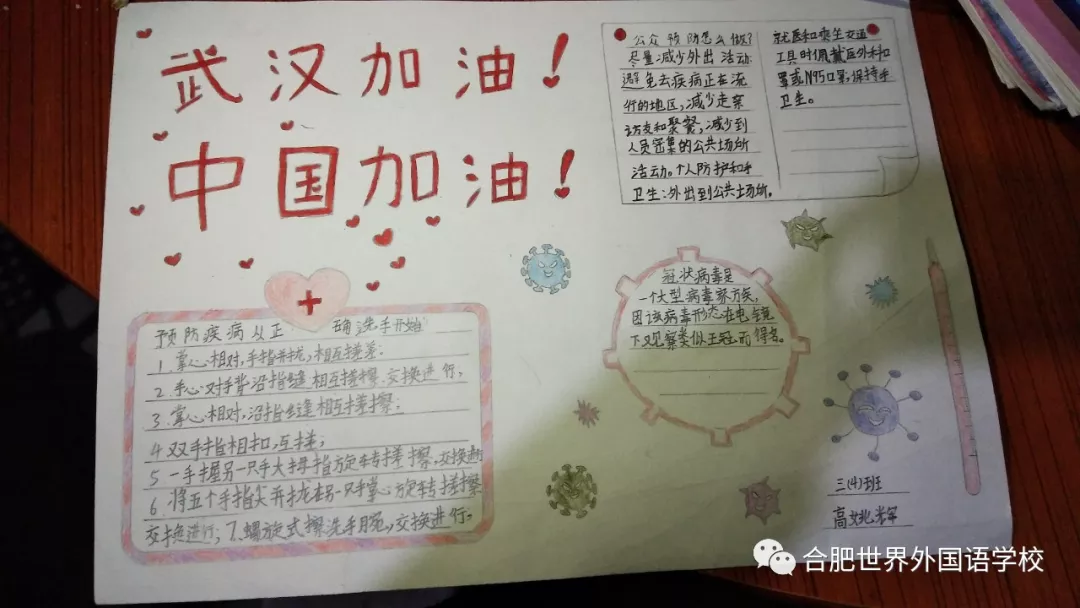 武汉加油！
中国加油！
公众预防怎么做？
尽量减少外出活动：
避免去疾病正在流
行的地区，减少走亲
访友和聚餐，减少到
人员密集的公共场所
活动。个人防护和手
卫生：外出到公共场所，
就医和乘坐交通
工具时佩戴医外科口
罩或N95口罩，保持手
卫生。
预防疾病从正 确洗手开始
1.掌心相对，手指并拢，相互搓差；
2.手心对手背沿指缝相互搓擦，交换进行；
3.掌心相对，沿指缝相互搓擦；
4.双手指相扣，互搓；
5一手握另一只手大拇指旋转搓擦，交换
6.将五个手指尖并拢在另一只手掌心旋转搓擦
交换进行；7.螺旋式擦洗手腕，交换进行。
冠状病毒是
一个大型病毒家族，
因该病毒形态在电镜
下观察类似王冠而得名。
三(4)班
高
合肥世界外国语学校